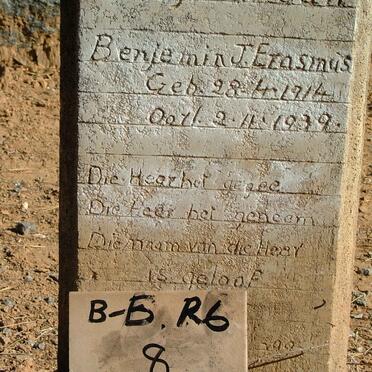 Benjemin J. Erasmus
Geb. 28.4.1914
Oorl. 2.4.1939
Die Heer het gegee
Die Heer het geneem
Die naam van die Heer
is geloof
B-E. R6
8